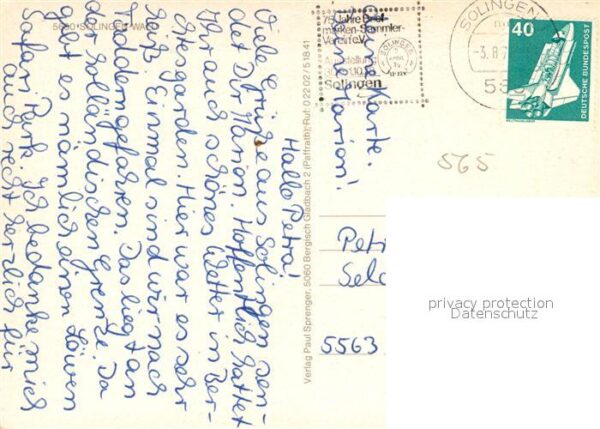 Hallo Petra!
Viele Grüße aus Solingen sen-
det Dir Marion. Hoffentlich hattet
Ihr auch schönes Wetter in Ber-
chtesgarden. Hier war es sehr
heiß. Einmal sind wir nach
gefahren. Das liegt an
der holländischen Grenze. Da
gibt es nämlich einen Löwen
Safari Park. Ich bedanke mich
auch recht herzlich für
Deine Karte.
Deine Marion!
5650 SOLINGEN-WALD
Verlag Paul Sprenger, 5060 Bergisch Gladbach 2 (Paffrath), Ruf: 0 22 02 / 5 18 41
75 Jahre Brief-
marken-Sammler-
Verein e.V.
Ausstellung
Solingen
SOLINGEN
SOLINGEN
-3.8.7
40
DEUTSCHE BUNDESPOST
WELTRAUMLABOR
565
Petr
5563
privacy protection
Datenschutz